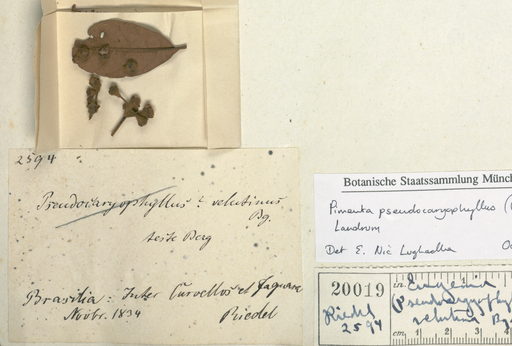 2594
Pseudocaryophyllus velutinus
Bg.
teste Berg
Brasilia: Inter Curvellos et Jaguara
Novbr. 1834 Riedel
Botanische Staatssammlung Münch
Pimenta pseudocaryophyllus (
Landrum
Det E. Nic Lughadha Oc
20019 in. Eugenia
(Pseudocaryoph
Riedel velutina Bg.
2594
cm. 1 2 3 4